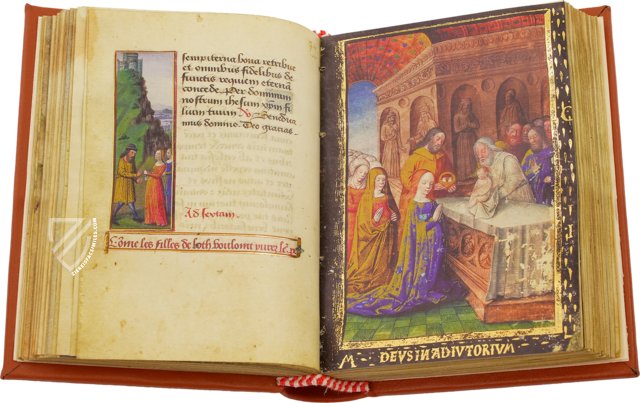 sempiterna bona retribue
et omnibus fidelibus de
functis requiem eternā
concede. Per dominum
nostrum ihesum xp̄m fi
lium tuum
mus domino. Deo gracias.
Ad sextam.
Cōme les filles de loth
M DEVS IN ADIVTORIVM
ZIEREISFACSIMILES.COM